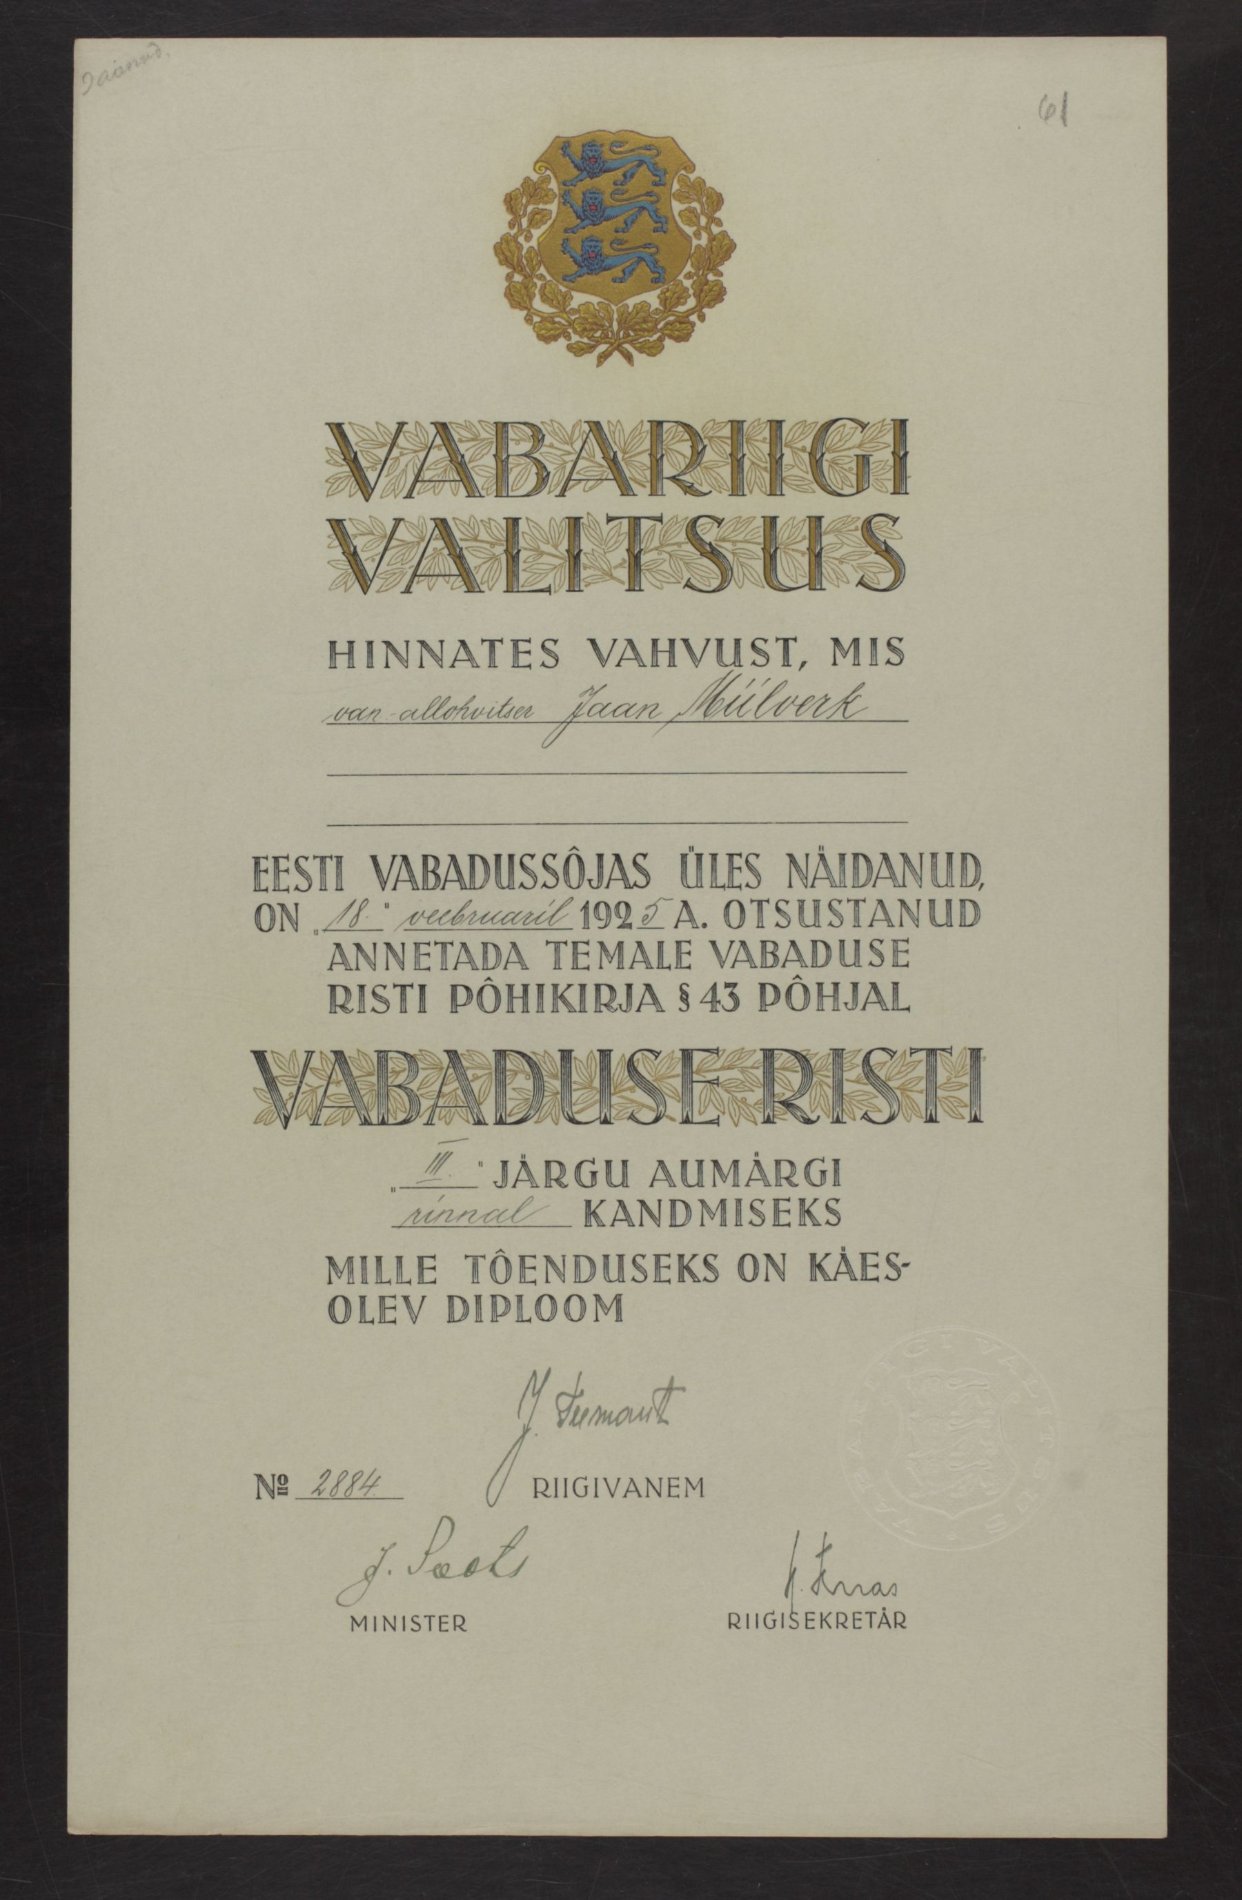 61
VABARIIGI
VALITSUS
HINNATES VAHVUST, MIS
van.-allohvitser Jaan Miilverk
EESTI VABADUSSÕJAS ÜLES NÄIDANUD,
ON „18." veebruaril 1925 A. OTSUSTANUD
ANNETADA TEMALE VABADUSE
RISTI PÕHIKIRJA § 43 PÕHJAL
VABADUSE RISTI
„III." JÄRGU AUMÄRGI
rinnal KANDMISEKS
MILLE TÕENDUSEKS ON KÄES-
OLEV DIPLOOM
J. Teemant
№ 2884. RIIGIVANEM
J. Soots
MINISTER
RIIGISEKRETÄR
VABARIIGI VALITSUS